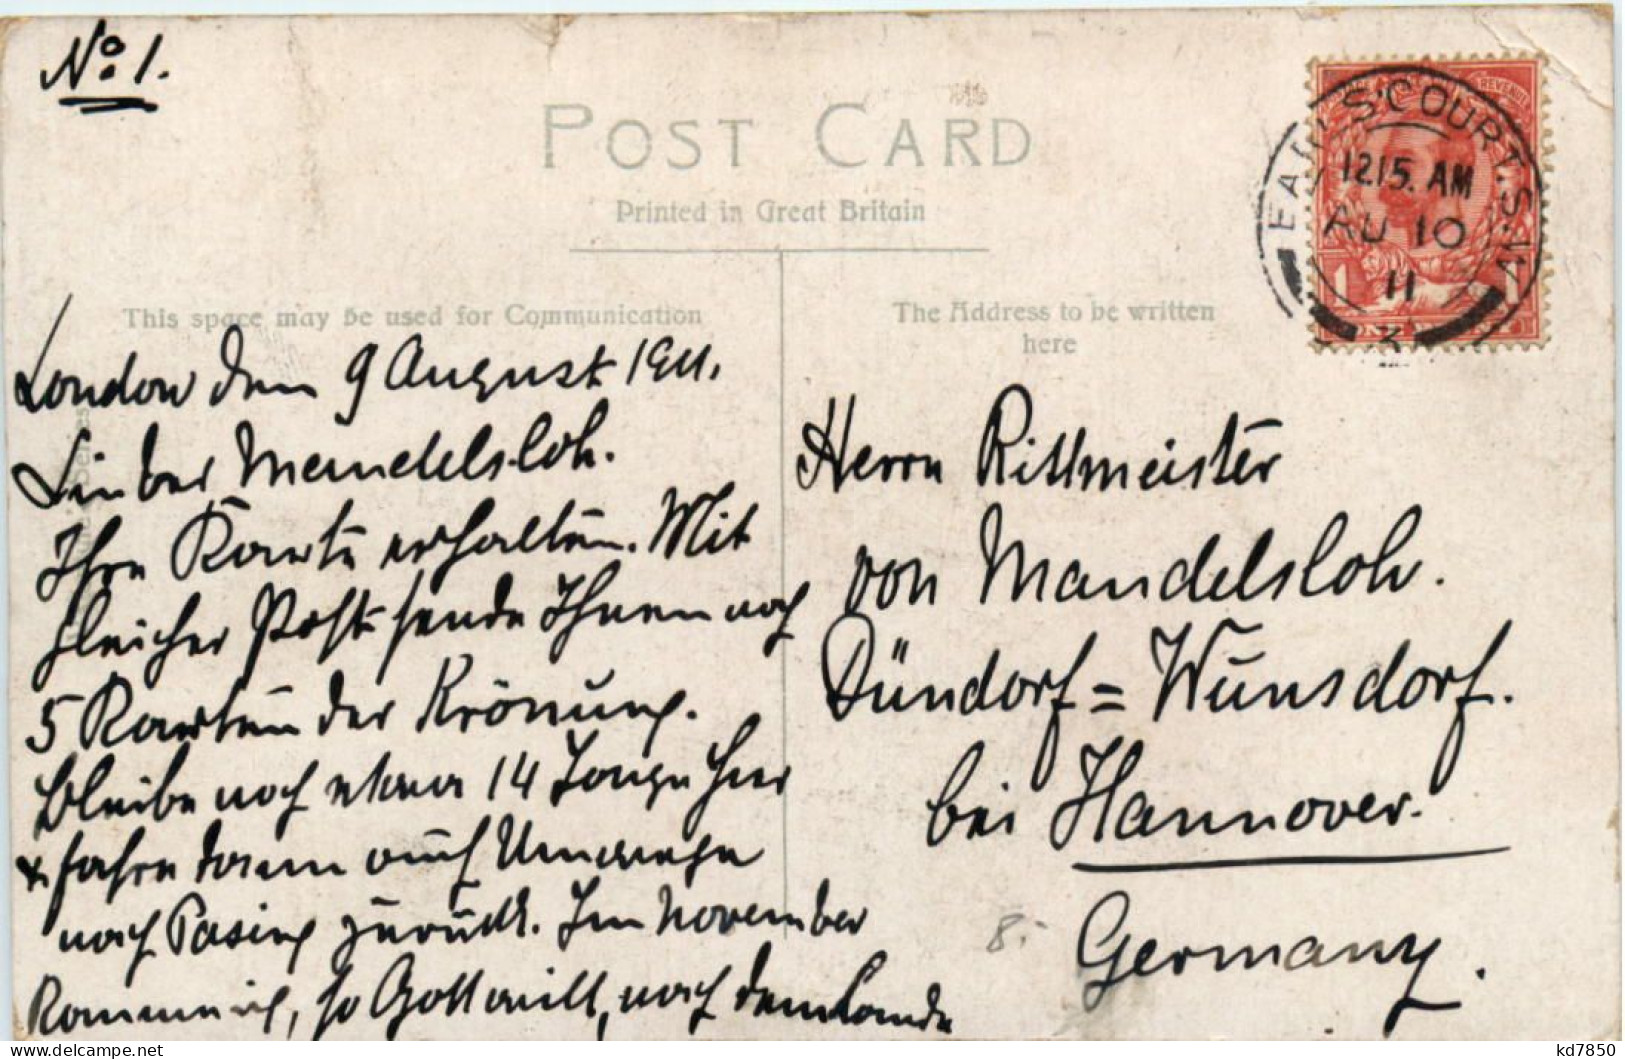 No. 1.
POST CARD
Printed in Great Britain
This space may be used for Communication
The Address to be written
here
EARL'S COURT. S.W.
12.15. AM
AU 10
11
3
REVENUE
1
London den 9 August 1911.
Lieber Mandelsloh.
Ihre Karte erhalten. Mit
gleicher Post sende Ihnen noch
5 Karten der Krönung.
Bleibe noch etwa 14 Tage hier
& fahre dann auf Umwege
nach Pasing zurück. Im November
komme ich, so Gott will, nach dem Lande
Herrn Rittmeister
von Mandelsloh.
Düendorf = Wunsdorf.
bei Hannover.
Germany.
8.-
kd7850